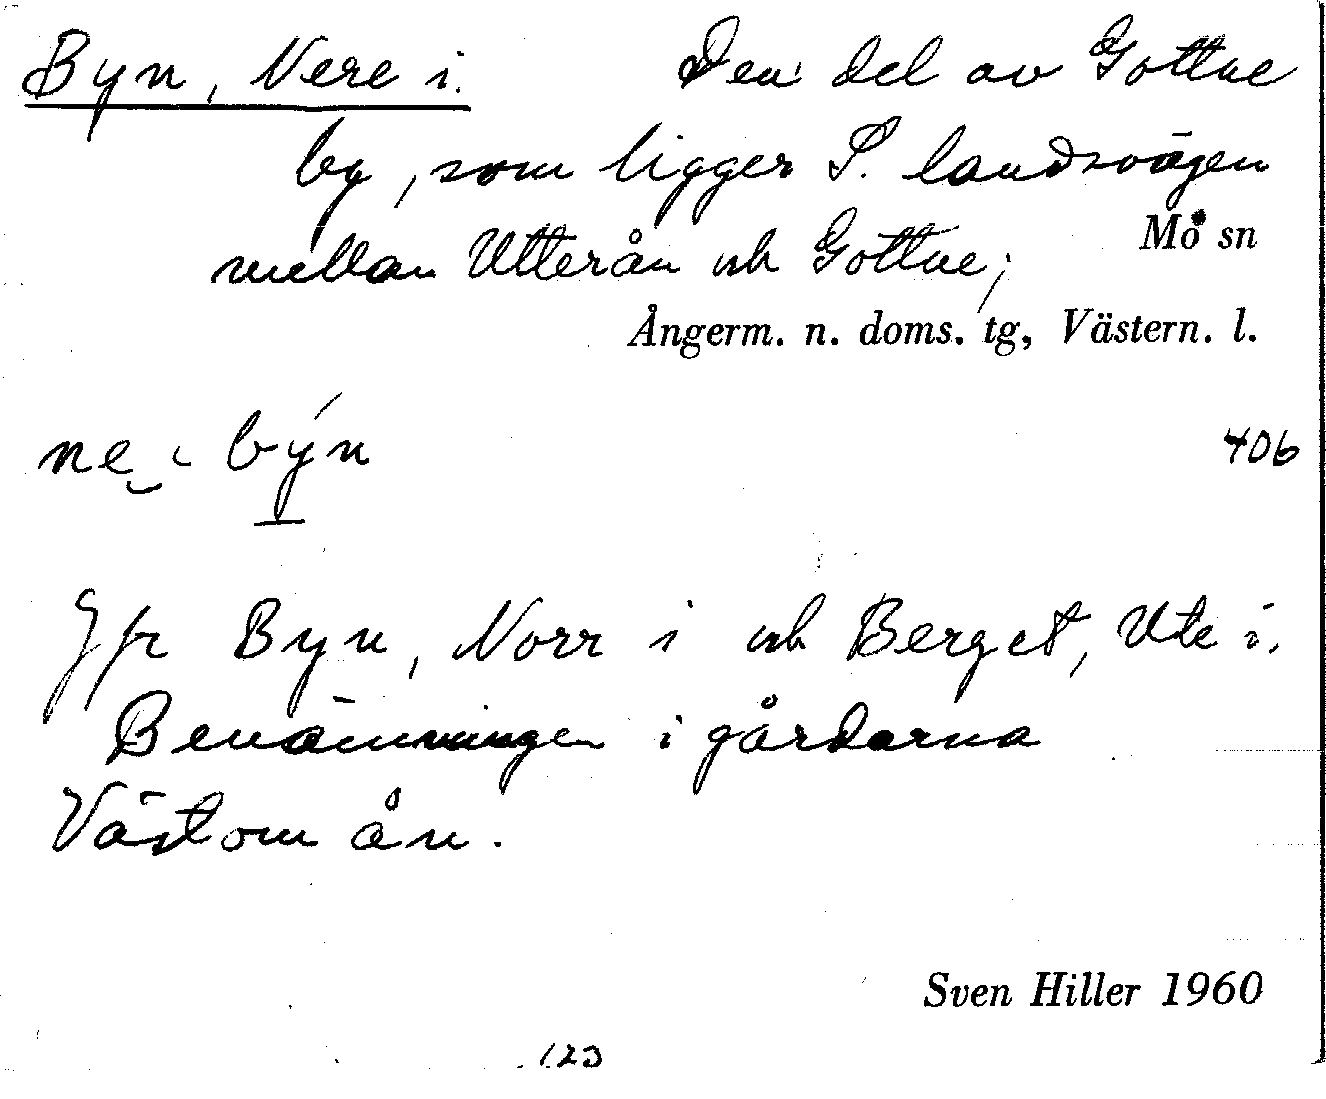 Byn, Nere i. Den del av Gottne
by, som ligger S. landsvägen
Mo sn
mellan Utterån och Gottne;
Ångerm. n. doms. tg, Västern. l.
406
ne i býn
Jfr Byn, Norr i och Berget, Ute i.
Benämningen i gårdarna
Västom ån.
Sven Hiller 1960
123